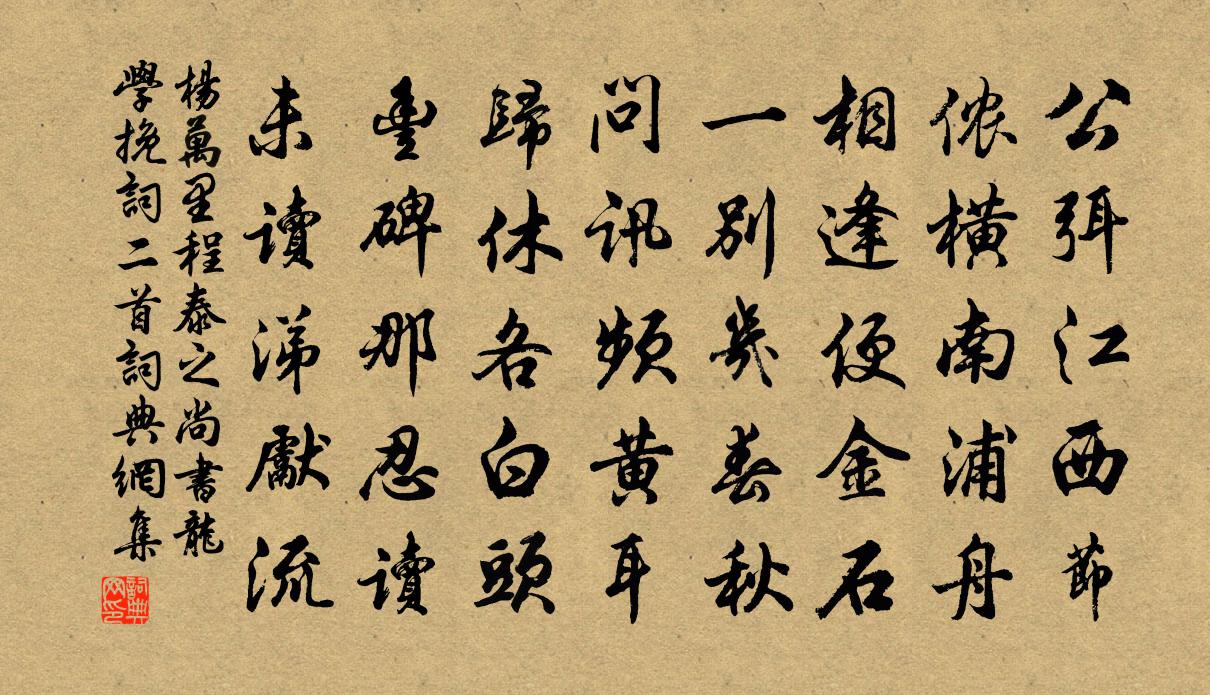 公弭江西節
儂橫南浦舟
相逢便金石
一別幾春秋
問訊頻黃耳
歸休各白頭
豐碑那忍讀
未讀涕獻流
楊萬里程泰之尚書龍
學挽詞二首詞典網集
詞典網印